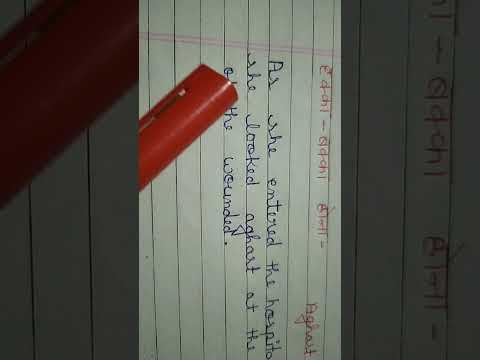 हक्का - बक्का होना - Aghast
As she entered the hospita
she looked aghast at the
the wounded.